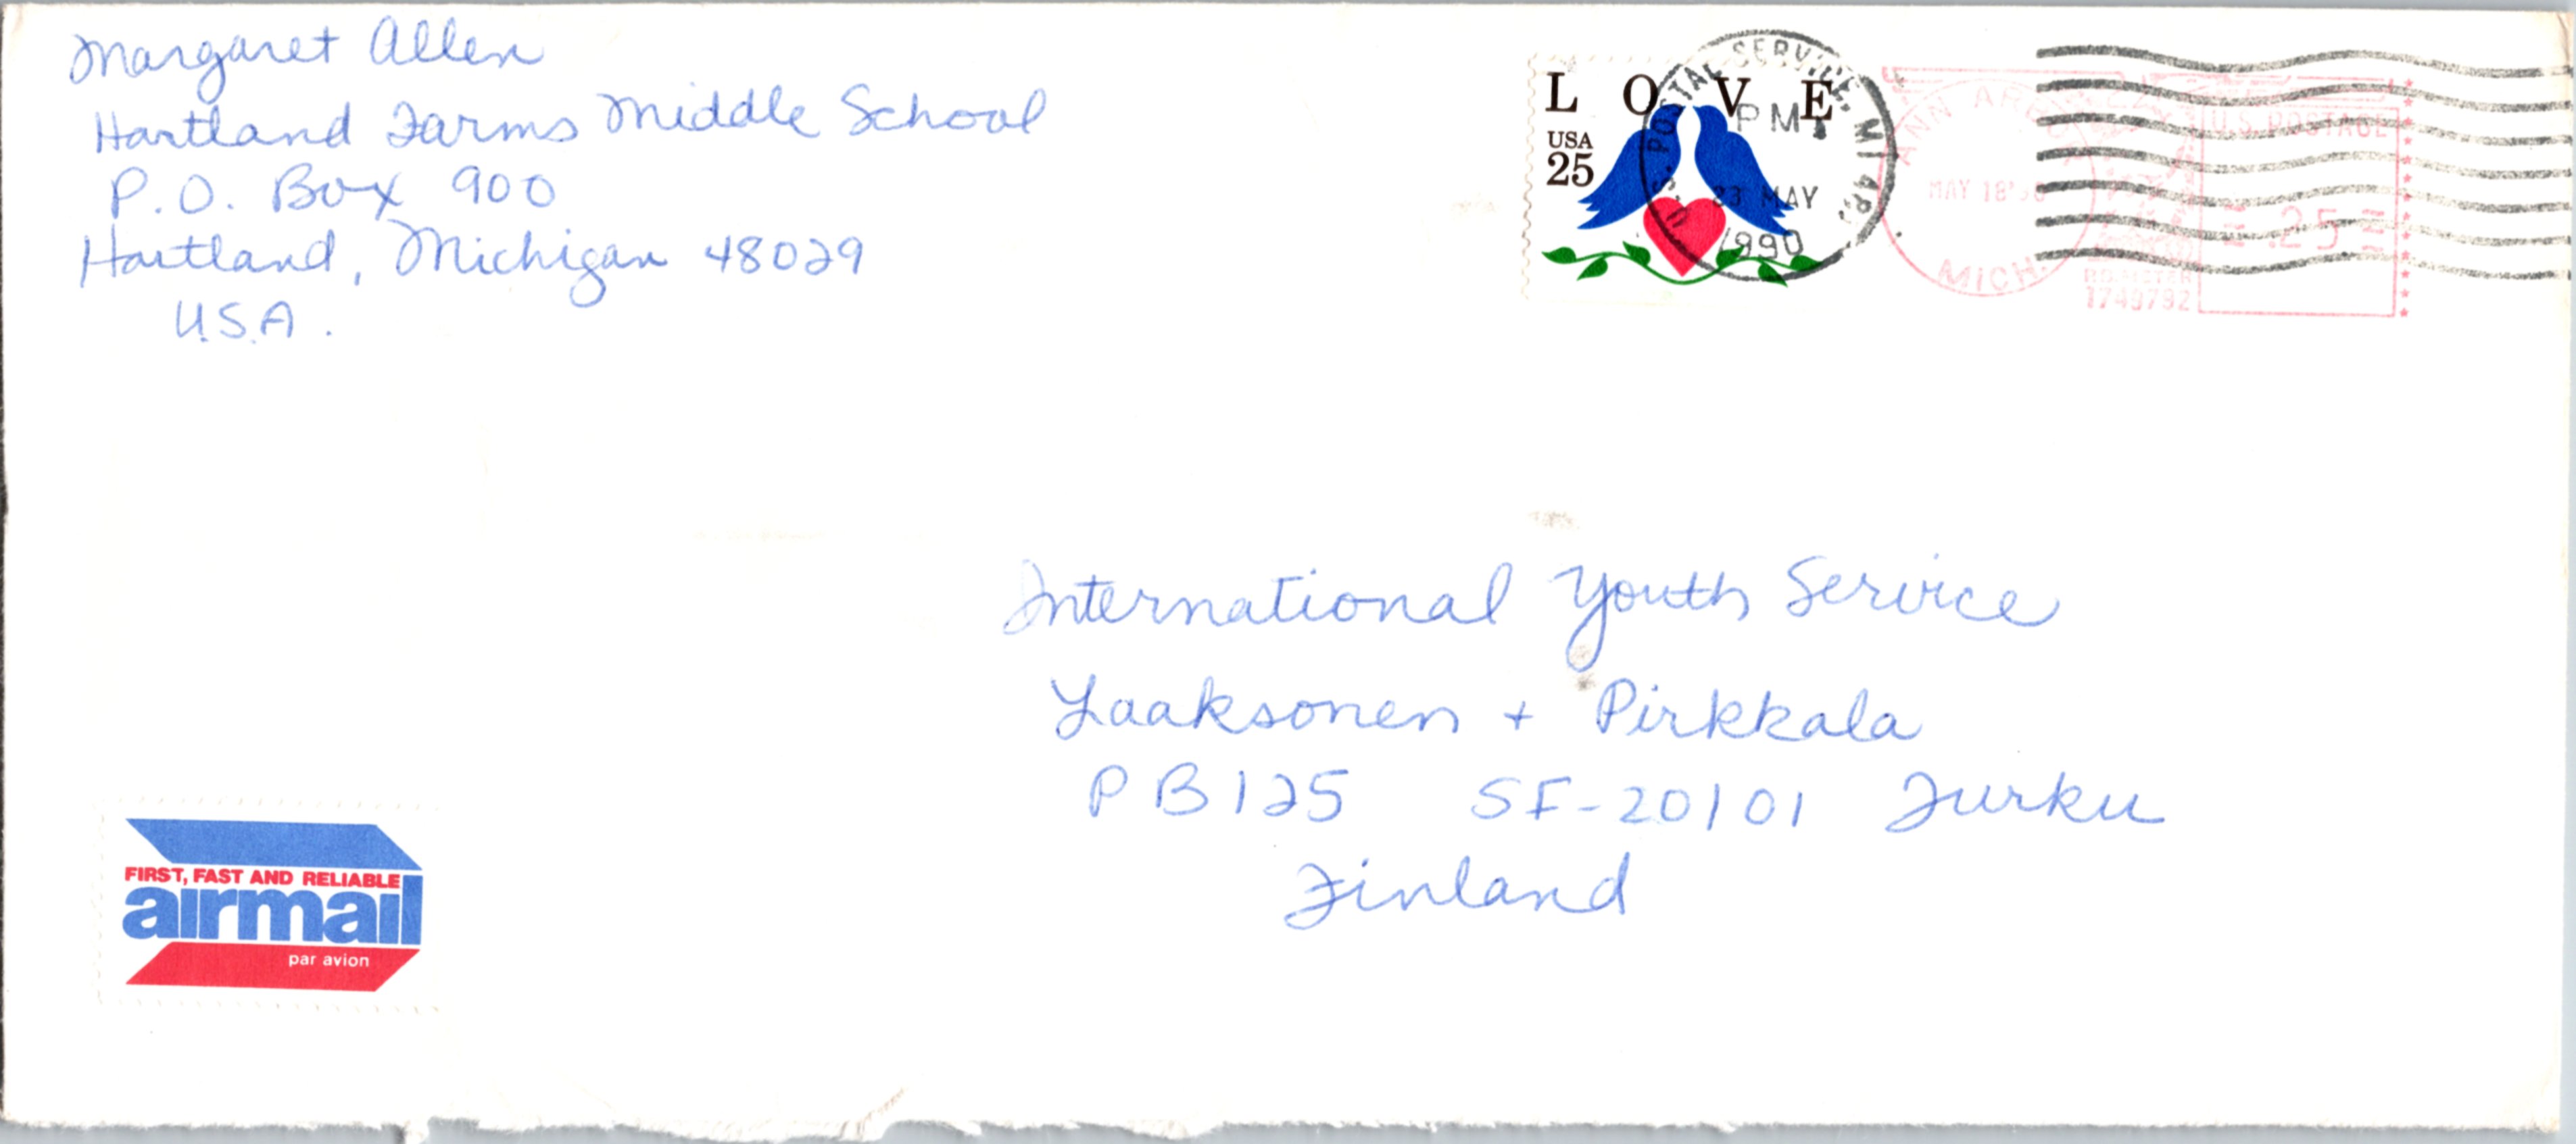 Margaret Allen
Hartland Farms Middle School
P.O. Box 900
Hartland, Michigan 48029
U.S.A.
L O V E
USA
25
U.S. POSTAL SERVICE, MI 48
PM
23 MAY
1990
ANN ARBOR
MAY 18'90
MICH.
U.S. POSTAGE
.25
PB METER
1749792
International Youth Service
Laaksonen + Pirkkala
PB 125 SF-20101 Turku
Finland
FIRST, FAST AND RELIABLE
airmail
par avion